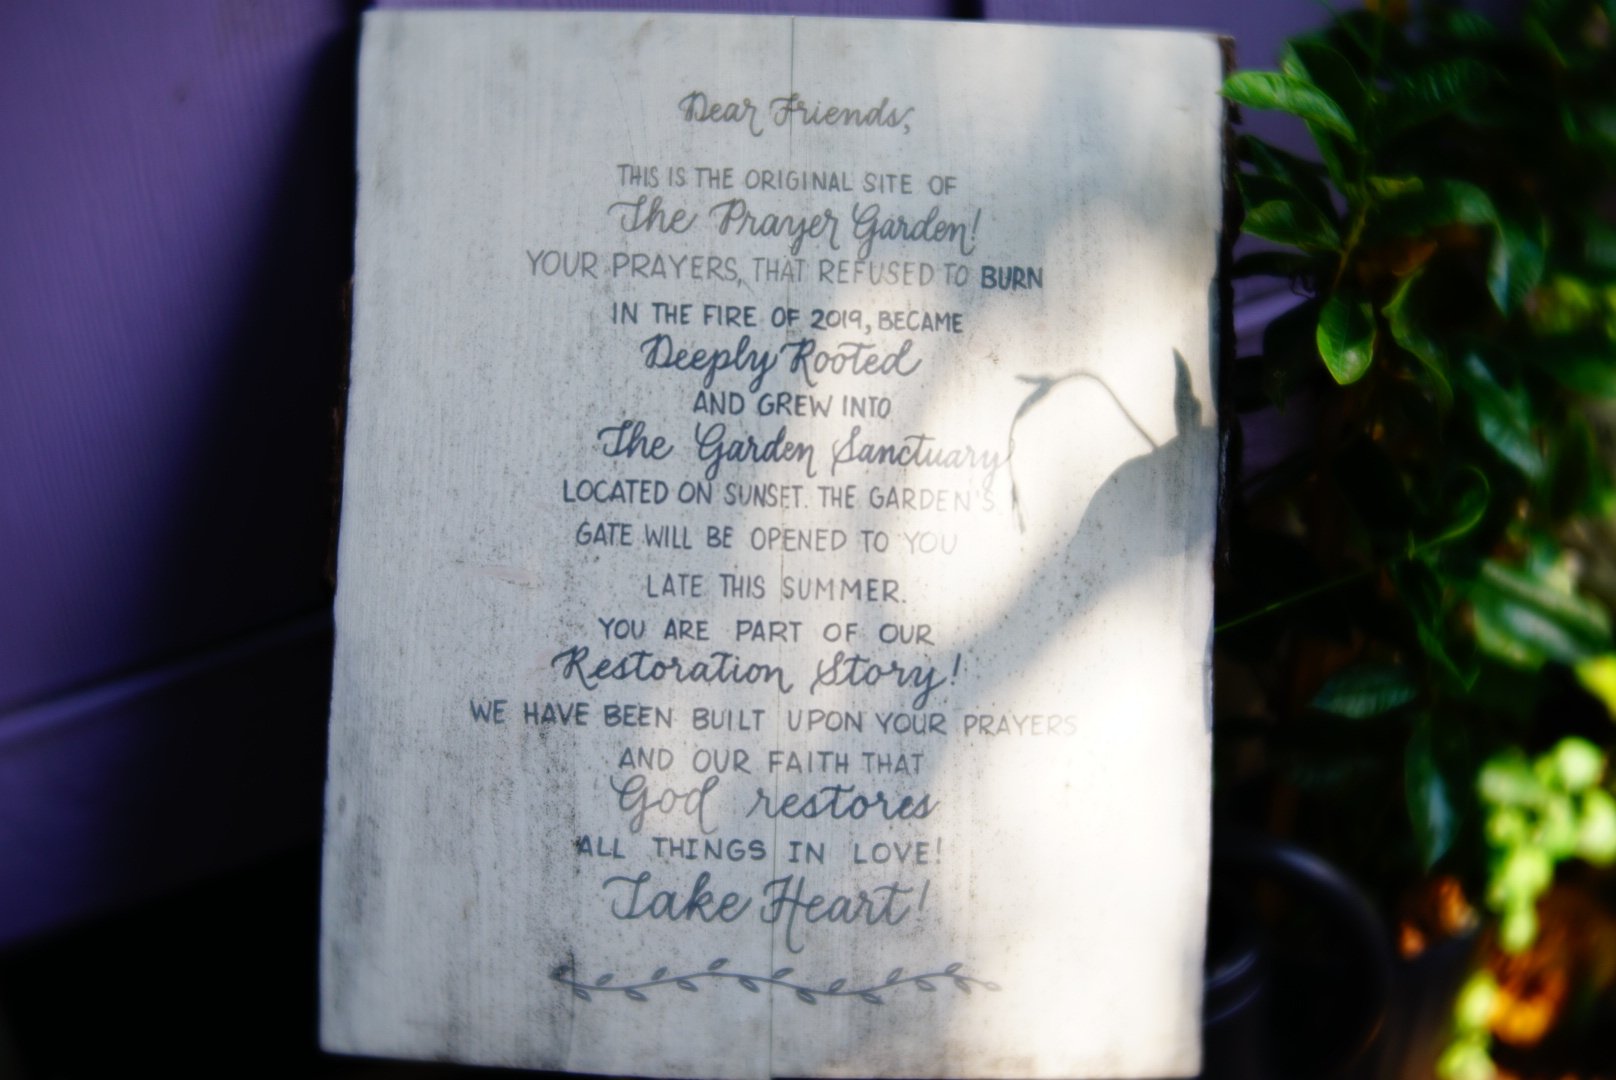 Dear Friends,
THIS IS THE ORIGINAL SITE OF
The Prayer Garden!
YOUR PRAYERS, THAT REFUSED TO BURN
IN THE FIRE OF 2019, BECAME
Deeply Rooted
AND GREW INTO
The Garden Sanctuary
LOCATED ON SUNSET. THE GARDEN'S
GATE WILL BE OPENED TO YOU
LATE THIS SUMMER.
YOU ARE PART OF OUR
Restoration Story!
WE HAVE BEEN BUILT UPON YOUR PRAYERS
AND OUR FAITH THAT
God restores
ALL THINGS IN LOVE!
Take Heart!